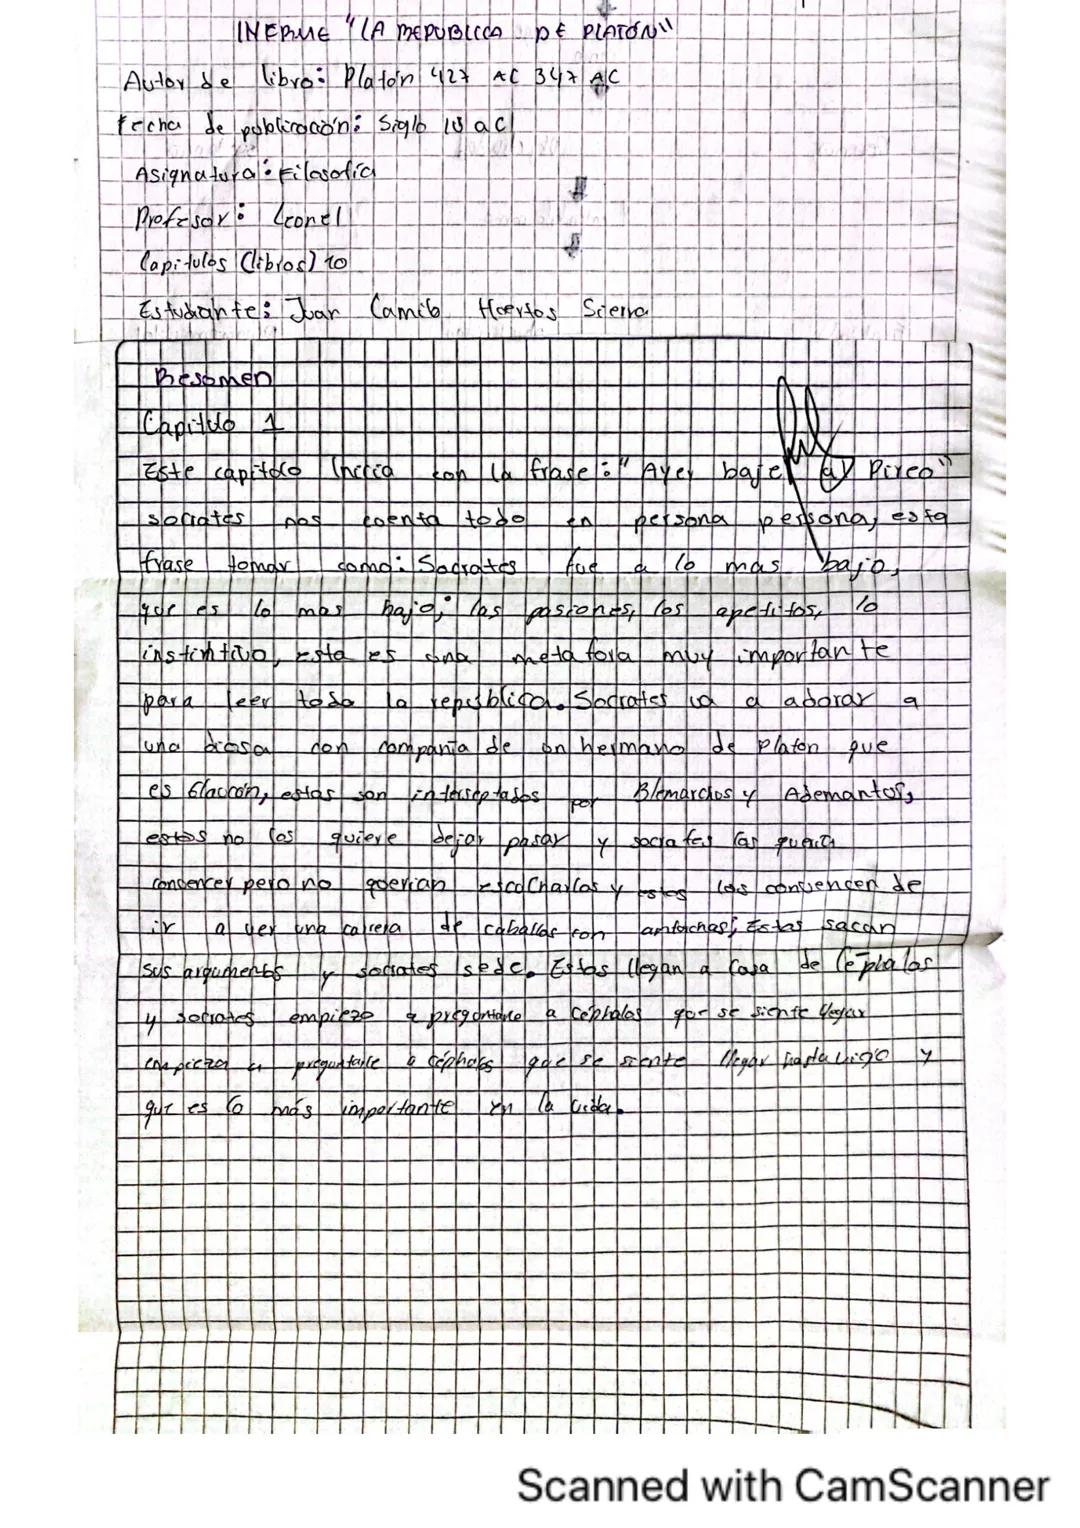 INFRME "LA REPUBLICA DE PLATÓN"
Autor de libro: Platón 427 AC 347 AC
Fecha de publicación: Siglo IV aC
Asignatura: Filosofía
Profesor: Leonel
Capitulos (libros) 10
Estudiante: Juan Camilo Huertos Sierra
Resumen
Capitulo 1
Este capitulo inicia con la frase: "Ayer baje al Pireo"
socrates nos cuenta todo en persona persona, esta
frase tomar como: Socrates fue a lo mas bajo,
que es lo mas bajo; las pasiones, los apetitos, lo
instintivo, esta es una metafora muy importante
para leer todo la república. Socrates va a adorar a
una diosa con compañia de un hermano de Platon que
es Glaucón, estos son interseptados por Blemarchos y Ademantos,
estos no los quiere dejar pasar y socrates los queria
convencer pero no querian escucharlos y estos los convencen de
ir a ver una carrera de caballos con antorchas; Estos sacan
sus argumentos y socrates sede. Estos llegan a casa de Céphalos
y socrates empieza a preguntarle a céphalos que se siente llegar
empieza a preguntarle a céphalos que se siente llegar hasta viejo y
que es lo más importante en la vida.
Scanned with CamScanner